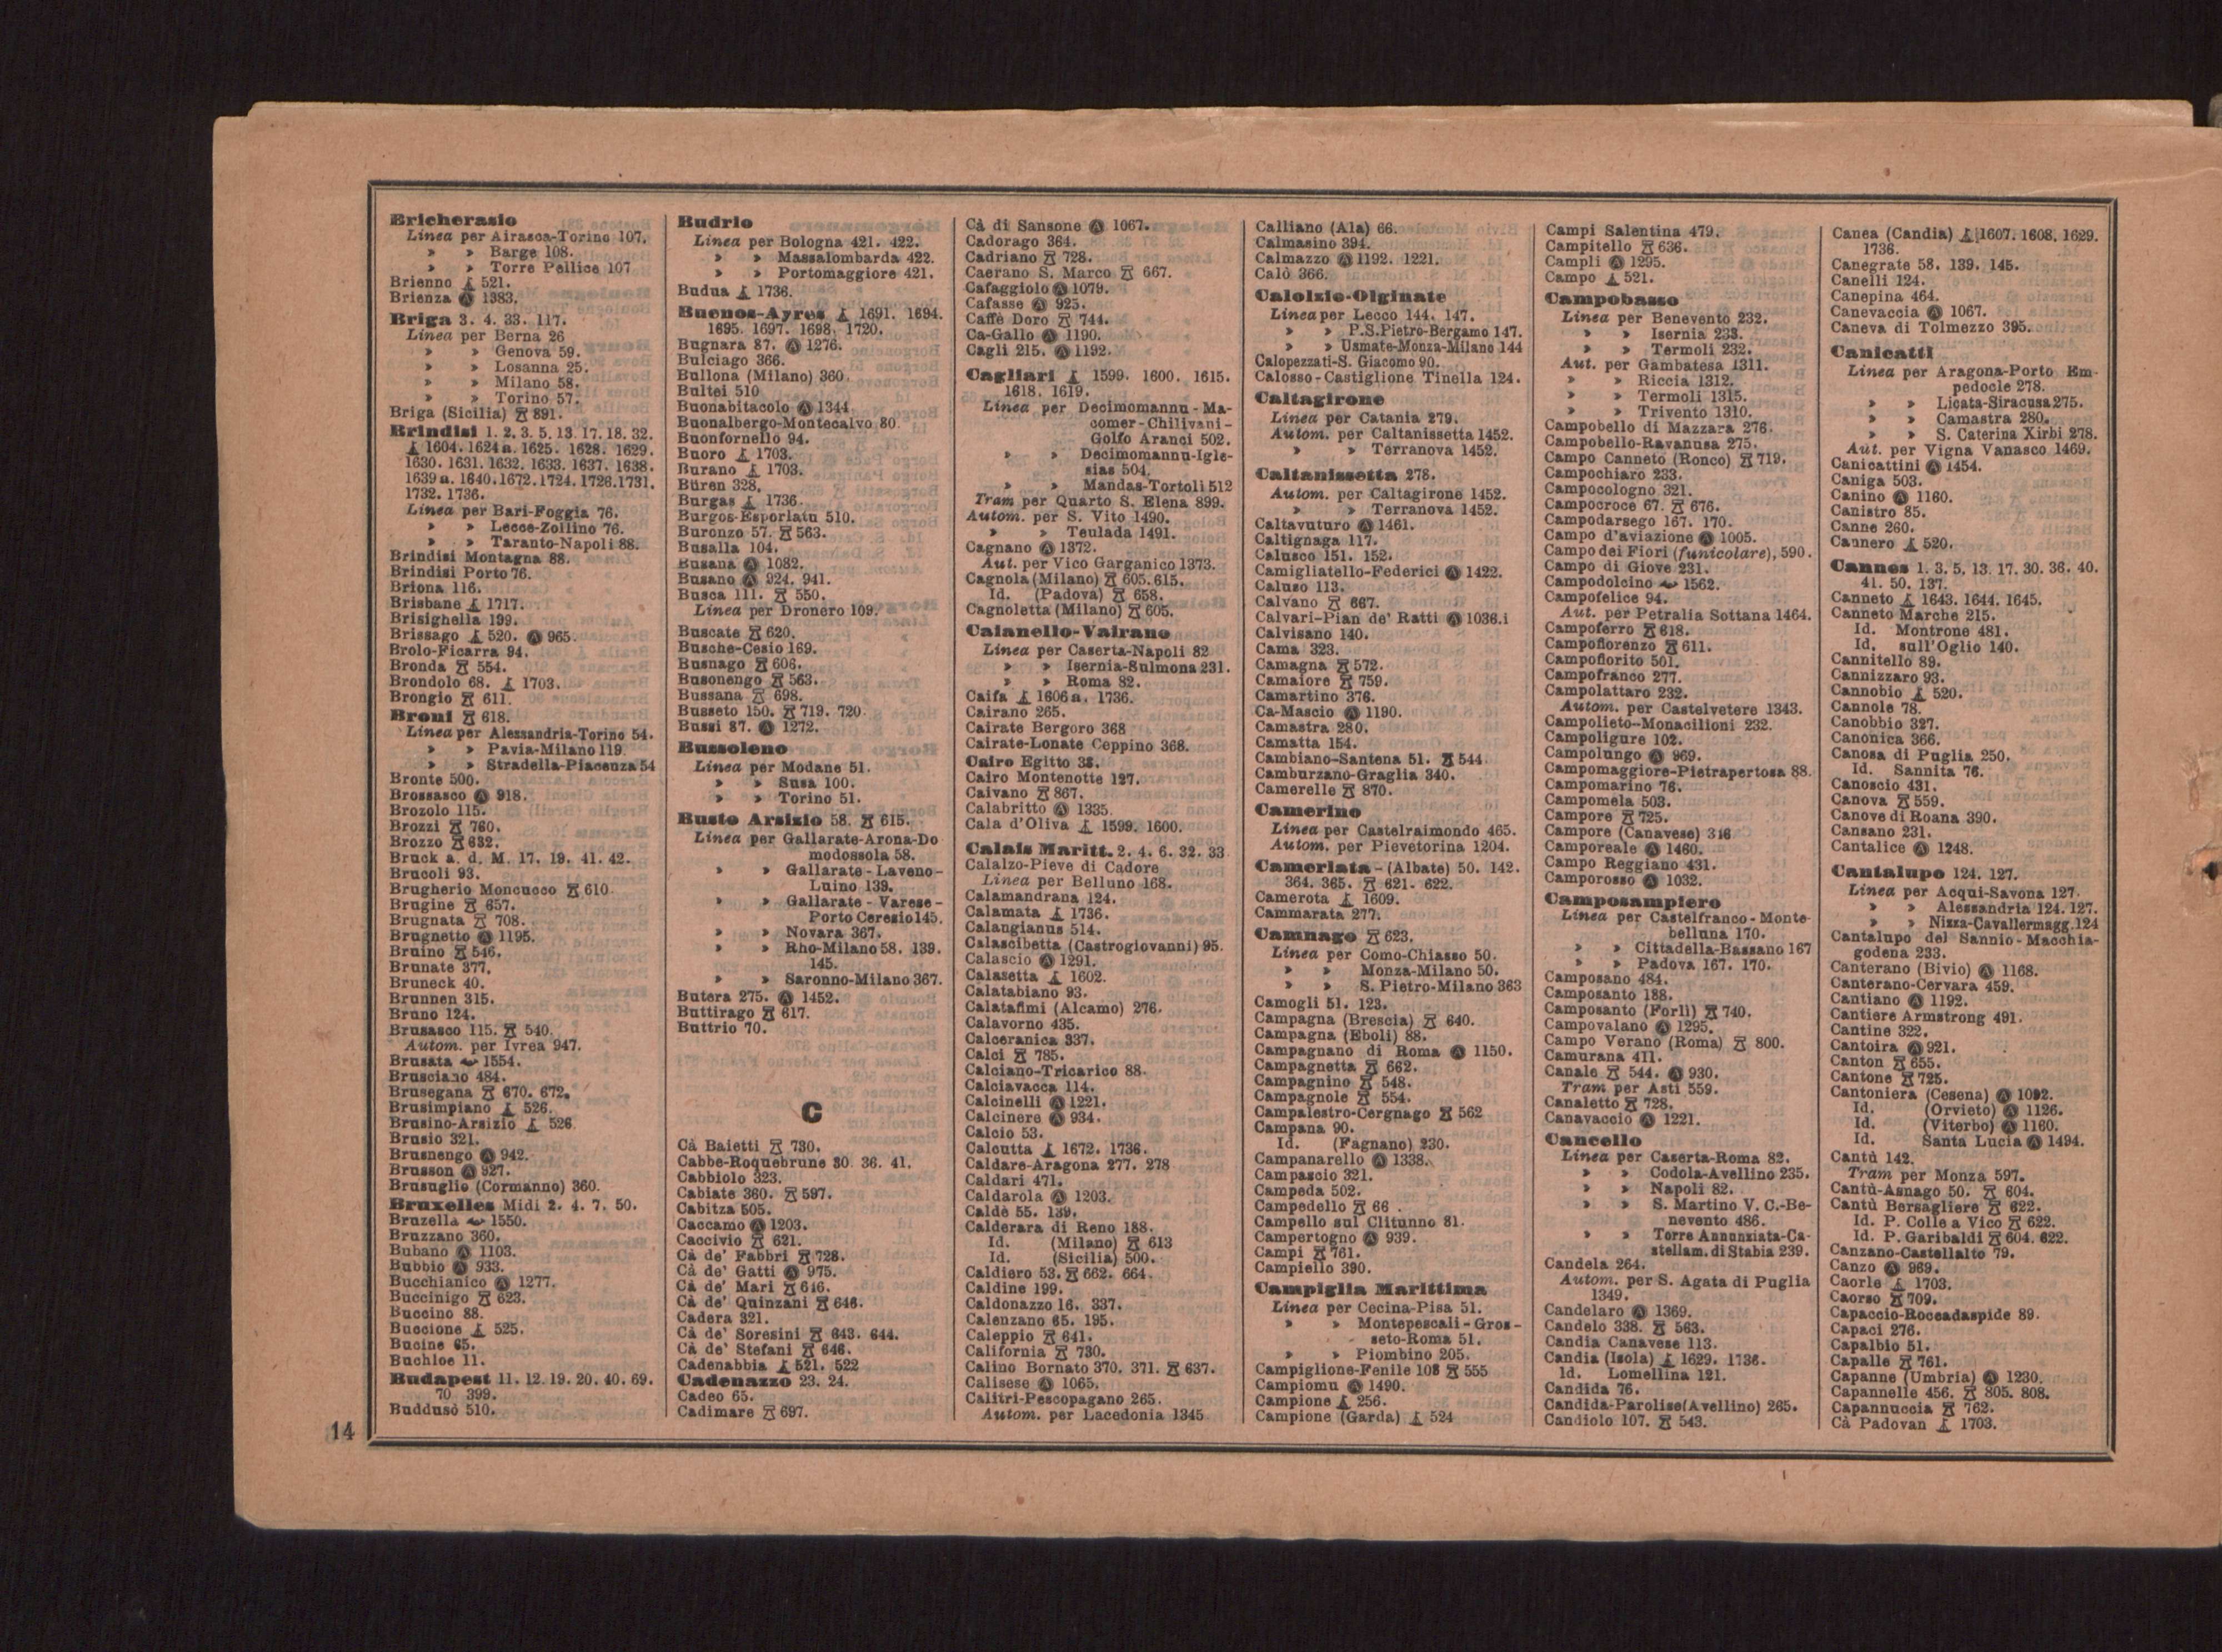 Bricherasio
Linea per Airasca-Torino 107.
» » Barge 108.
» » Torre Pellice 107
Brienno 521.
Brienza Ⓐ 1383.
Briga 3. 4. 33. 117.
Linea per Berna 26
» » Genova 59.
» » Losanna 25.
» » Milano 58.
» » Torino 57.
Briga (Sicilia) 891.
Brindisi 1. 2. 3. 5. 13. 17. 18. 32.
1604. 1624 a. 1625. 1628. 1629.
1630. 1631. 1632. 1633. 1637. 1638.
1639 a. 1640. 1672. 1724. 1726. 1731.
1732. 1736.
Linea per Bari-Foggia 76.
» » Lecce-Zollino 76.
» » Taranto-Napoli 88.
Brindisi Montagna 88.
Brindisi Porto 76.
Briona 116.
Brisbane 1717.
Brisighella 199.
Brissago 520. Ⓐ 965.
Brolo-Ficarra 94.
Bronda 554.
Brondolo 68. 1703.
Brongio 611.
Broni 618.
Linea per Alessandria-Torino 54.
» » Pavia-Milano 119.
» » Stradella-Piacenza 54
Bronte 500.
Brossasco Ⓐ 918.
Brozolo 115.
Brozzi 760.
Brozzo 632.
Bruck a. d. M. 17. 19. 41. 42.
Brucoli 93.
Brugherio Moncucco 610.
Brugine 657.
Brugnata 708.
Brugnetto Ⓐ 1195.
Bruino 546.
Brunate 377.
Bruneck 40.
Brunnen 315.
Bruno 124.
Brusasco 115. 540.
Autom. per Ivrea 947.
Brusata 1554.
Brusciano 484.
Brusegana 670. 672.
Brusimpiano 526.
Brusino-Arsizio 526
Brusio 321.
Brusnengo Ⓐ 942.
Brusson Ⓐ 927.
Brusuglio (Cormanno) 360.
Bruxelles Midi 2. 4. 7. 50.
Bruzella 1550.
Bruzzano 360.
Bubano Ⓐ 1103.
Bubbio Ⓐ 933.
Bucchianico Ⓐ 1277.
Buccinigo 623.
Buccino 88.
Buccione 525.
Bucine 65.
Buchloe 11.
Budapest 11. 12. 19. 20. 40. 69.
70. 399.
Buddusò 510.
Budrio
Linea per Bologna 421. 422.
» » Massalombarda 422.
» » Portomaggiore 421.
Budua 1736.
Buenos-Ayres 1691. 1694.
1695. 1697. 1698. 1720.
Bugnara 87. Ⓐ 1276.
Bulciago 366.
Bullona (Milano) 360.
Bultei 510
Buonabitacolo Ⓐ 1344
Buonalbergo-Montecalvo 80.
Buonfornello 94.
Buoro 1703.
Burano 1703.
Büren 328.
Burgas 1736.
Burgos-Esporlatu 510.
Buronzo 57. 563.
Busalla 104.
Busana Ⓐ 1082.
Busano Ⓐ 924. 941.
Busca 111. 550.
Linea per Dronero 109.
Buscate 620.
Busche-Cesio 169.
Busnago 606.
Busonengo 563.
Bussana 698.
Busseto 150. 719. 720.
Bussi 87. Ⓐ 1272.
Bussoleno
Linea per Modane 51.
» » Susa 100.
» » Torino 51.
Busto Arsizio 58. 615.
Linea per Gallarate-Arona-Do
modossola 58.
» » Gallarate-Laveno-
Luino 139.
» » Gallarate-Varese-
Porto Ceresio 145.
» » Novara 367.
» » Rho-Milano 58. 139.
145.
» » Saronno-Milano 367.
Butera 275. Ⓐ 1452.
Buttirago 617.
Buttrio 70.
C
Cà Baietti 730.
Cabbe-Roquebrune 30. 36. 41.
Cabbiolo 323.
Cabiate 360. 597.
Cabitza 505.
Caccamo Ⓐ 1203.
Caccivio 621.
Cà de' Fabbri 728.
Cà de' Gatti Ⓐ 975.
Cà de' Mari 646.
Cà de' Quinzani 646.
Cadera 321.
Cà de' Soresini 643. 644.
Cà de' Stefani 646.
Cadenabbia 521. 522
Cadenazzo 23. 24.
Cadeo 65.
Cadimare 697.
Cà di Sansone Ⓐ 1067.
Cadorago 364.
Cadriano 728.
Caerano S. Marco 667.
Cafaggiolo Ⓐ 1079.
Cafasse Ⓐ 925.
Caffè Doro 744.
Ca-Gallo Ⓐ 1190.
Cagli 215. Ⓐ 1192.
Cagliari 1599. 1600. 1615.
1618. 1619.
Linea per Decimomannu-Ma-
comer-Chilivani-
Golfo Aranci 502.
» » Decimomannu-Igle-
sias 504.
» » Mandas-Tortoli 512
Tram per Quarto S. Elena 899.
Autom. per S. Vito 1490.
» » Teulada 1491.
Cagnano Ⓐ 1372.
Aut. per Vico Garganico 1373.
Cagnola (Milano) 605. 615.
Id. (Padova) 658.
Cagnoletta (Milano) 605.
Caianello-Vairano
Linea per Caserta-Napoli 82
» » Isernia-Sulmona 231.
» » Roma 82.
Caifa 1606 a. 1736.
Cairano 265.
Cairate Bergoro 368
Cairate-Lonate Ceppino 368.
Cairo Egitto 38.
Cairo Montenotte 127.
Caivano 867.
Calabritto Ⓐ 1335.
Cala d'Oliva 1599. 1600.
Calais Maritt. 2. 4. 6. 32. 33
Calalzo-Pieve di Cadore
Linea per Belluno 168.
Calamandrana 124.
Calamata 1736.
Calangianus 514.
Calascibetta (Castrogiovanni) 95.
Calascio Ⓐ 1291.
Calasetta 1602.
Calatabiano 93.
Calatafimi (Alcamo) 276.
Calavorno 435.
Calceranica 337.
Calci 785.
Calciano-Tricarico 88.
Calciavacca 114.
Calcinelli Ⓐ 1221.
Calcinere Ⓐ 934.
Calcio 53.
Calcutta 1672. 1736.
Caldare-Aragona 277. 278
Caldari 471.
Caldarola Ⓐ 1203.
Caldè 55. 139.
Calderara di Reno 188.
Id. (Milano) 613
Id. (Sicilia) 500.
Caldiero 53. 662. 664.
Caldine 199.
Caldonazzo 16. 337.
Calenzano 65. 195.
Caleppio 641.
California 730.
Calino Bornato 370. 371. 637.
Calisese Ⓐ 1065.
Calitri-Pescopagano 265.
Autom. per Lacedonia 1345
Calliano (Ala) 66.
Calmasino 394.
Calmazzo Ⓐ 1192. 1221.
Calò 366.
Calolzio-Olginate
Linea per Lecco 144. 147.
» » P.S.Pietro-Bergamo 147.
» » Usmate-Monza-Milano 144
Calopezzati-S. Giacomo 90.
Calosso-Castiglione Tinella 124.
Caltagirone
Linea per Catania 279.
Autom. per Caltanissetta 1452.
» » Terranova 1452.
Caltanissetta 278.
Autom. per Caltagirone 1452.
» » Terranova 1452.
Caltavuturo Ⓐ 1461.
Caltignaga 117.
Calusco 151. 152.
Camigliatello-Federici Ⓐ 1422.
Caluso 113.
Calvano 667.
Calvari-Pian de' Ratti Ⓐ 1036.i
Calvisano 140.
Cama 323.
Camagna 572.
Camaiore 759.
Camartino 376.
Ca-Mascio Ⓐ 1190.
Camastra 280.
Camatta 154.
Cambiano-Santena 51. 544
Camburzano-Graglia 340.
Camerelle 870.
Camerino
Linea per Castelraimondo 465.
Autom. per Pievetorina 1204.
Camerlata-(Albate) 50. 142.
364. 365. 621. 622.
Camerota 1609.
Cammarata 277.
Camnago 623.
Linea per Como-Chiasso 50.
» » Monza-Milano 50.
» » S. Pietro-Milano 363
Camogli 51. 123.
Campagna (Brescia) 640.
Campagna (Eboli) 88.
Campagnano di Roma Ⓐ 1150.
Campagnetta 662.
Campagnino 548.
Campagnole 554.
Campalestro-Cergnago 562
Campana 90.
Id. (Fagnano) 230.
Campanarello Ⓐ 1338.
Campascio 321.
Campeda 502.
Campedello 66 .
Campello sul Clitunno 81.
Campertogno Ⓐ 939.
Campi 761.
Campiello 390.
Campiglia Marittima
Linea per Cecina-Pisa 51.
» » Montepescali-Gros-
seto-Roma 51.
» » Piombino 205.
Campiglione-Fenile 108 555
Campiomu Ⓐ 1490.
Campione 256.
Campione (Garda) 524
Campi Salentina 479.
Campitello 636.
Campli Ⓐ 1295.
Campo 521.
Campobasso
Linea per Benevento 232.
» » Isernia 233.
» » Termoli 232.
Aut. per Gambatesa 1311.
» » Riccia 1312.
» » Termoli 1315.
» » Trivento 1310.
Campobello di Mazzara 276.
Campobello-Ravanusa 275.
Campo Canneto (Ronco) 719.
Campochiaro 233.
Campocologno 321.
Campocroce 67. 676.
Campodarsego 167. 170.
Campo d'aviazione Ⓐ 1005.
Campo dei Fiori (funicolare), 590.
Campo di Giove 231.
Campodolcino 1562.
Campofelice 94.
Aut. per Petralia Sottana 1464.
Campoferro 618.
Campoflorenzo 611.
Campoflorito 501.
Campofranco 277.
Campolattaro 232.
Autom. per Castelvetere 1343.
Campolieto-Monacilioni 232.
Campoligure 102.
Campolungo Ⓐ 969.
Campomaggiore-Pietrapertosa 88.
Campomarino 76.
Campomela 503.
Campore 725.
Campore (Canavese) 316
Camporeale Ⓐ 1460.
Campo Reggiano 431.
Camporosso Ⓐ 1032.
Camposampiero
Linea per Castelfranco-Monte-
belluna 170.
» » Cittadella-Bassano 167
» » Padova 167. 170.
Camposano 484.
Camposanto 188.
Camposanto (Forlì) 740.
Campovalano Ⓐ 1295.
Campo Verano (Roma) 800.
Camurana 411.
Canale 544. Ⓐ 930.
Tram per Asti 559.
Canaletto 728.
Canavaccio Ⓐ 1221.
Cancello
Linea per Caserta-Roma 82.
» » Codola-Avellino 235.
» » Napoli 82.
» » S. Martino V. C.-Be-
nevento 486.
» » Torre Annunziata-Ca-
stellam. di Stabia 239.
Candela 264.
Autom. per S. Agata di Puglia
1349.
Candelaro Ⓐ 1369.
Candelo 338. 563.
Candia Canavese 113.
Candia (Isola) 1629. 1736.
Id. Lomellina 121.
Candida 76.
Candida-Parolise(Avellino) 265.
Candiolo 107. 543.
Canea (Candia) 1607. 1608. 1629.
1736.
Canegrate 58. 139. 145.
Canelli 124.
Canepina 464.
Canevaccia Ⓐ 1067.
Caneva di Tolmezzo 395.
Canicattì
Linea per Aragona-Porto Em-
pedocle 278.
» » Licata-Siracusa 275.
» » Camastra 280.
» » S. Caterina Xirbi 278.
Aut. per Vigna Vanasco 1469.
Canicattini Ⓐ 1454.
Caniga 503.
Canino Ⓐ 1160.
Canistro 85.
Canne 260.
Cannero 520.
Cannes 1. 3. 5. 13. 17. 30. 36. 40.
41. 50. 137.
Canneto 1643. 1644. 1645.
Canneto Marche 215.
Id. Montrone 481.
Id. sull'Oglio 140.
Cannitello 89.
Cannizzaro 93.
Cannobio 520.
Cannole 78.
Canobbio 327.
Canonica 366.
Canosa di Puglia 250.
Id. Sannita 76.
Canoscio 431.
Canova 559.
Canove di Roana 390.
Cansano 231.
Cantalice Ⓐ 1248.
Cantalupo 124. 127.
Linea per Acqui-Savona 127.
» » Alessandria 124. 127.
» » Nizza-Cavallermagg. 124
Cantalupo del Sannio-Macchia-
godena 233.
Canterano (Bivio) Ⓐ 1168.
Canterano-Cervara 459.
Cantiano Ⓐ 1192.
Cantiere Armstrong 491.
Cantine 322.
Cantoira Ⓐ 921.
Canton 655.
Cantone 725.
Cantoniera (Cesena) Ⓐ 1092.
Id. (Orvieto) Ⓐ 1126.
Id. (Viterbo) Ⓐ 1160.
Id. Santa Lucia Ⓐ 1494.
Cantù 142.
Tram per Monza 597.
Cantù-Asnago 50. 604.
Cantù Bersagliere 622.
Id. P. Colle a Vico 622.
Id. P. Garibaldi 604. 622.
Canzano-Castellalto 79.
Canzo Ⓐ 969.
Caorle 1703.
Caorso 709.
Capaccio-Roccadaspide 89.
Capaci 276.
Capalbio 51.
Capalle 761.
Capanne (Umbria) Ⓐ 1230.
Capannelle 456. 805. 808.
Capannuccia 762.
Cà Padovan 1703.
14